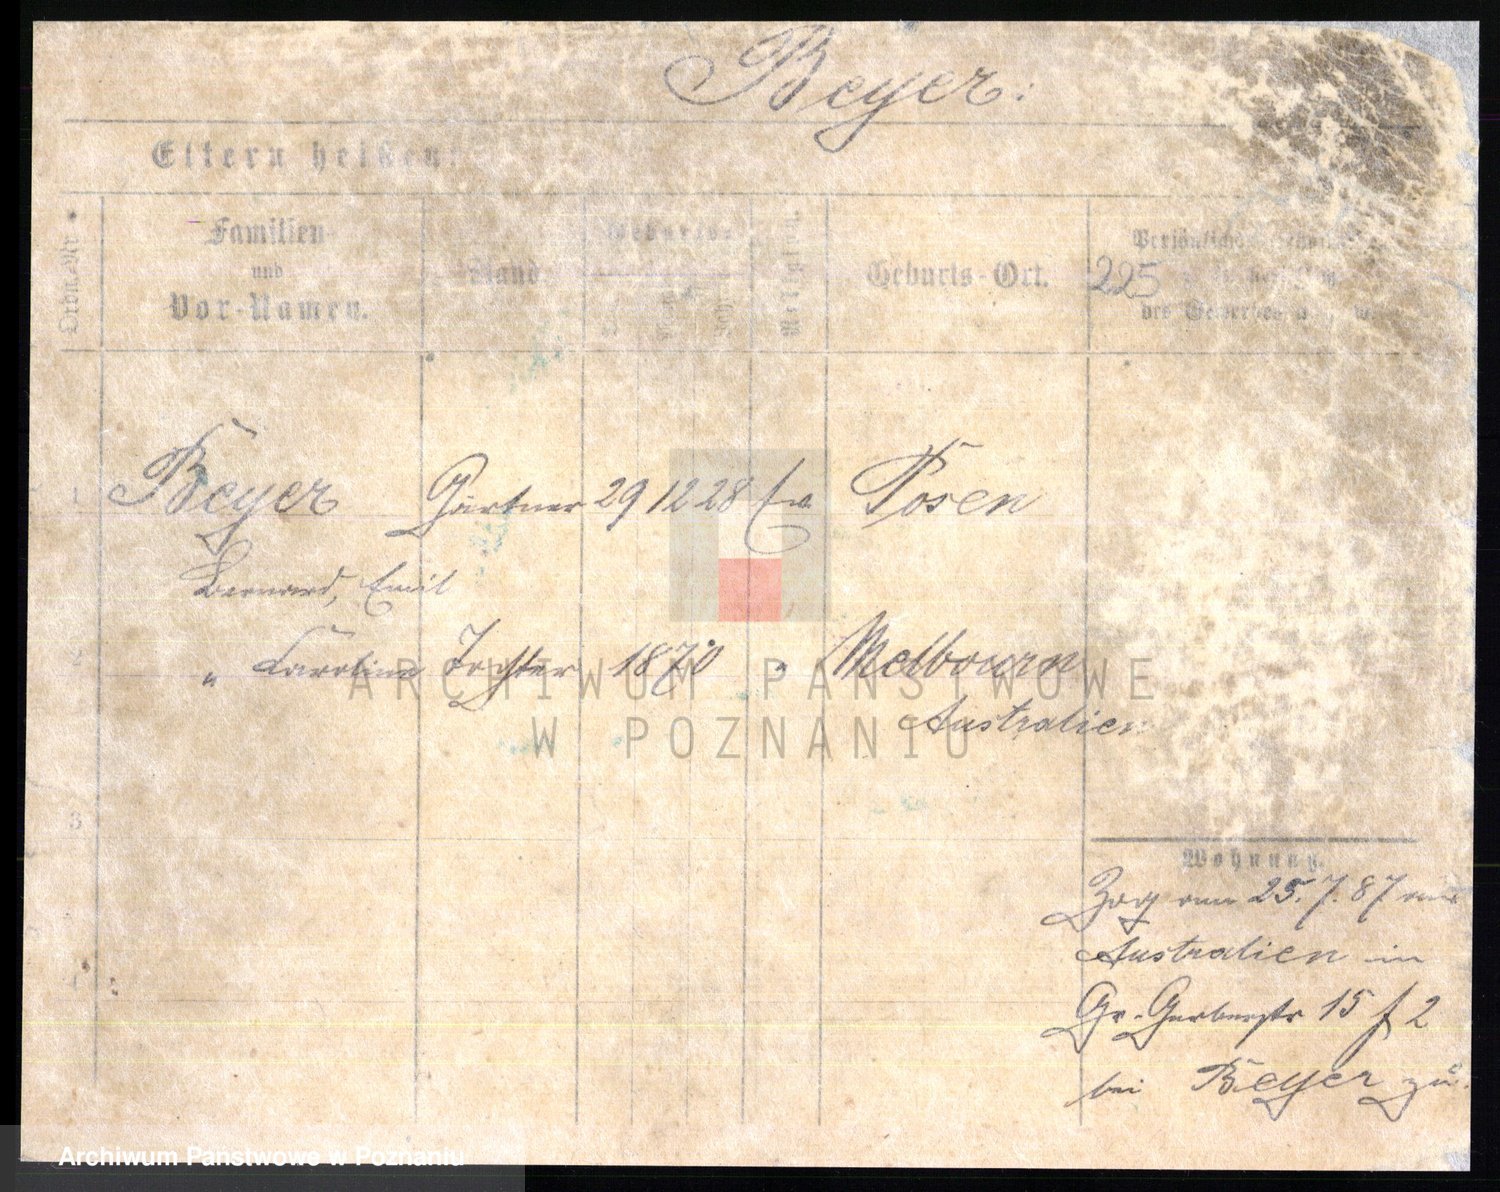 Beyer:
Eltern heißen:
Ordn. Nr.
Familien
und
Vor-Namen.
Stand
Geburts-
Religion.
Geburts-Ort.
225
des Gewerbes u. s. w.
1 Beyer Gärtner 29 12 28 ev Posen
Bernard, Emil
2 " Karoline Tochter 1870 " Melbourn
Australien
3
4
Wohnung.
Zog am 25.7.87 aus
Australien in
Gr. Gerberstr 15 f 2
bei Beyer zu.
ARCHIWUM PAŃSTWOWE
W POZNANIU
Archiwum Państwowe w Poznaniu